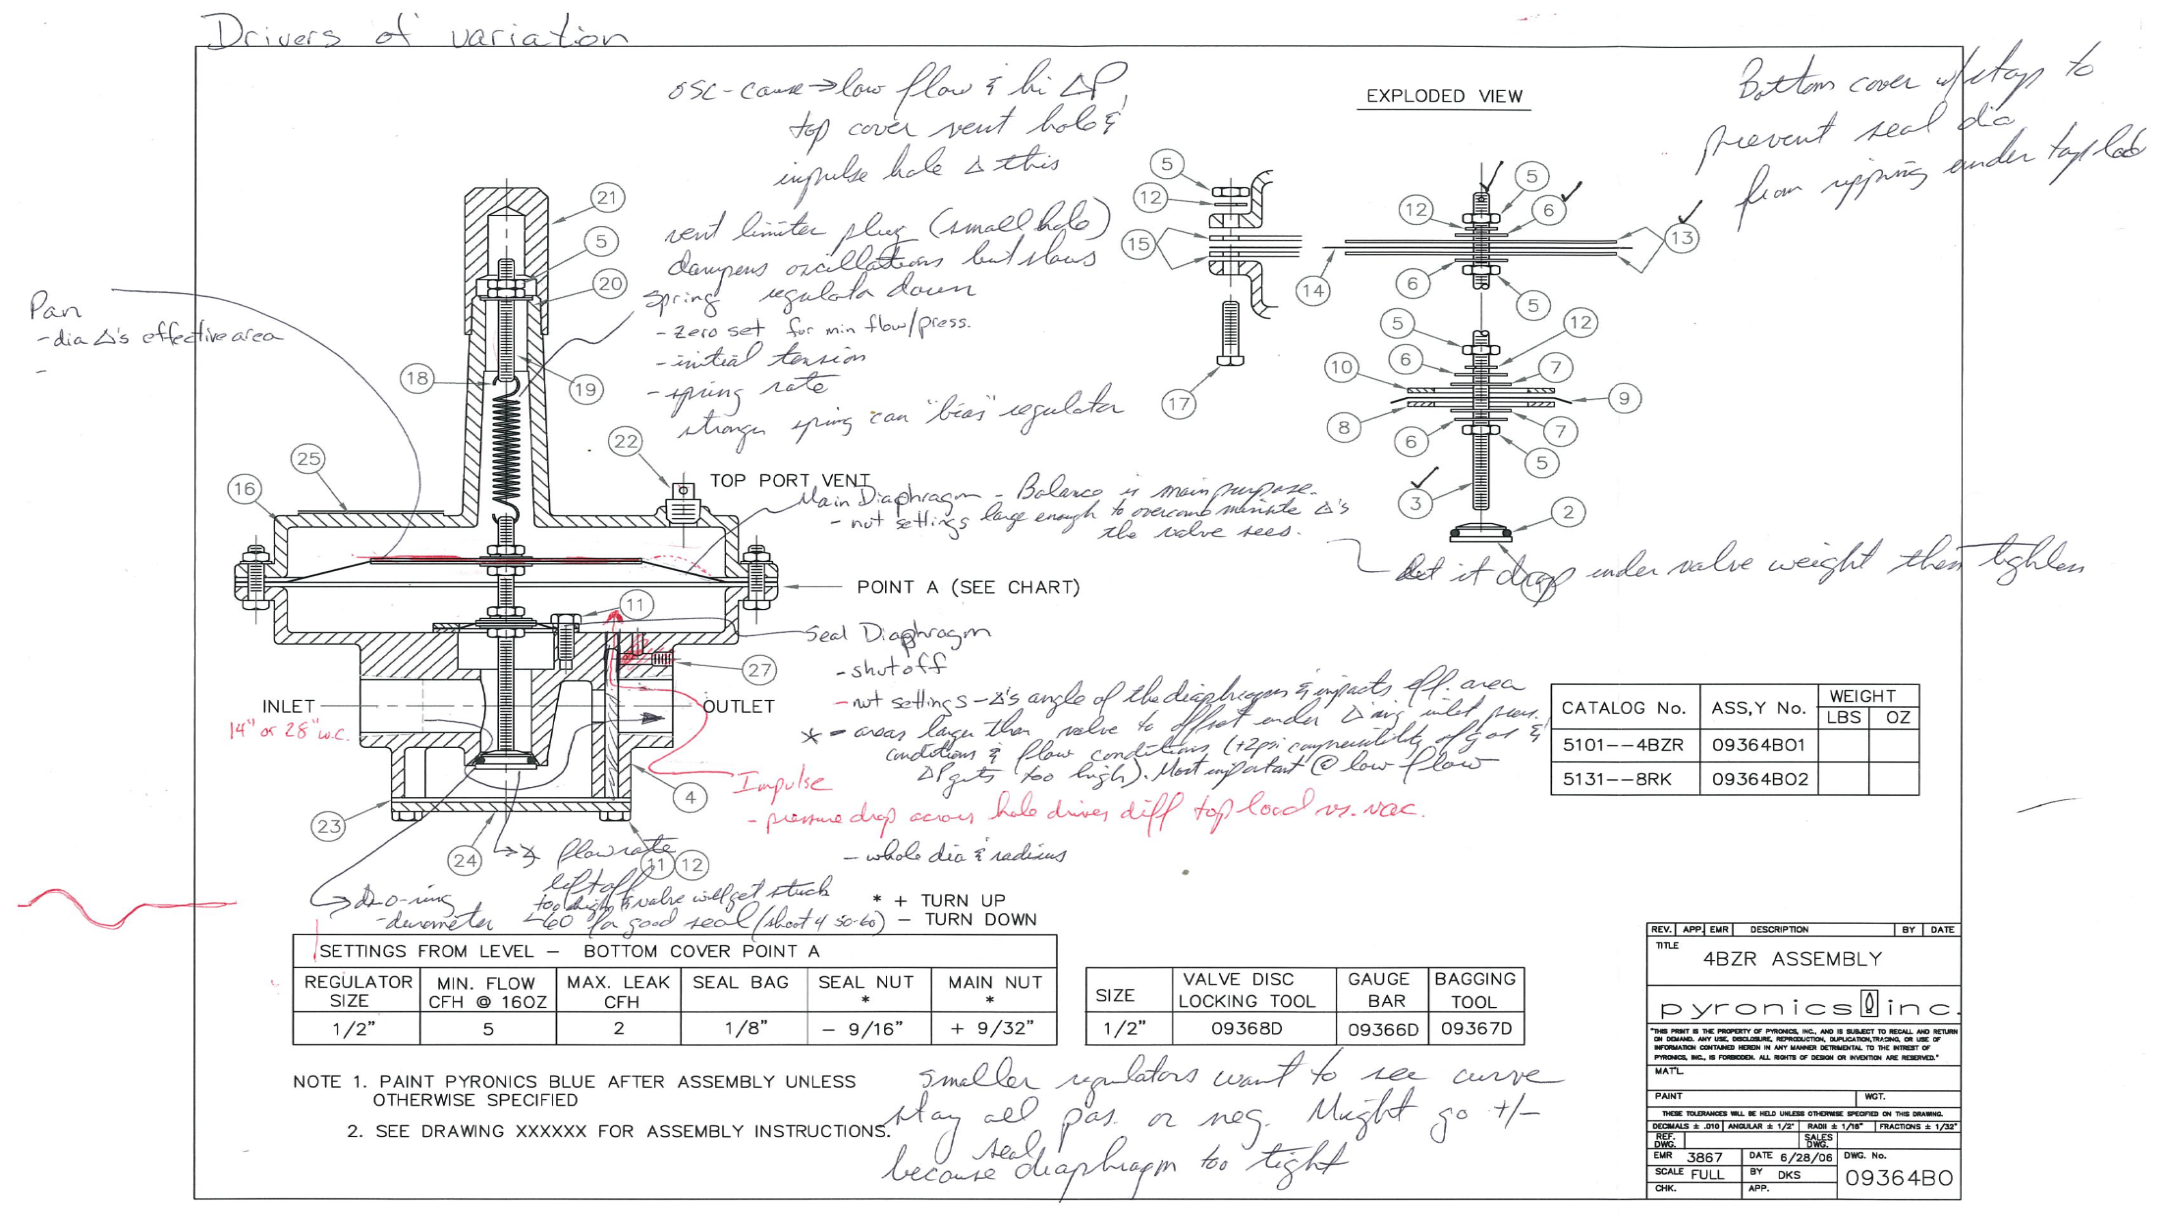 Drivers of variation
osc-cause → low flow & hi ΔP,
top cover vent hole &
impulse hole Δ this
EXPLODED VIEW
Bottom cover w/stop to
prevent seal dia
from ripping under top load
vent limiter plug (small hole)
dampens oscillations but slows
regulator down
spring
- zero set for min flow/press.
- initial tension
- spring rate
stronger spring can "bias" regulator
Pan
- dia Δ's effective area
-
21
5
20
18
19
25
16
22
TOP PORT VENT
Main Diaphragm - Balance is main purpose.
- nut settings large enough to overcome minute Δ's
the valve sees.
Let it drop under valve weight then tighten
POINT A (SEE CHART)
11
Seal Diaphragm
- shutoff
- nut settings - Δ's angle of the diaphragm & impacts eff. area
* - areas larger than valve to offset under Δ'ing inlet press.
conditions & flow conditions (+2psi compressibility of gas &
ΔP gets too high). Most important @ low flow
27
INLET
14" or 28" w.c.
OUTLET
Impulse
- pressure drop across hole drives diff top load vs. vac.
- whole dia & radius
4
23
24
11
12
flow rate
liftoff
too high & valve will get stuck
60 for good seal (shoot 4 50-60)
o-ring
- durometer
5
12
15
17
14
5
12
6
13
6
5
5
12
6
7
10
9
8
7
6
5
3
2
1
CATALOG No. ASS,Y No. WEIGHT
LBS OZ
5101--4BZR 09364BO1
5131--8RK 09364BO2
* + TURN UP
- TURN DOWN
SETTINGS FROM LEVEL - BOTTOM COVER POINT A
REGULATOR SIZE MIN. FLOW CFH @ 16OZ MAX. LEAK CFH SEAL BAG SEAL NUT * MAIN NUT *
1/2" 5 2 1/8" - 9/16" + 9/32"
SIZE VALVE DISC LOCKING TOOL GAUGE BAR BAGGING TOOL
1/2" 09368D 09366D 09367D
NOTE 1. PAINT PYRONICS BLUE AFTER ASSEMBLY UNLESS
OTHERWISE SPECIFIED
2. SEE DRAWING XXXXXX FOR ASSEMBLY INSTRUCTIONS.
smaller regulators want to see curve
stay all pos. or neg. Might go +/-
seal
because diaphragm too tight
REV. APP. EMR DESCRIPTION BY DATE
TITLE
4BZR ASSEMBLY
pyronics inc.
"THIS PRINT IS THE PROPERTY OF PYRONICS, INC., AND IS SUBJECT TO RECALL AND RETURN
ON DEMAND. ANY USE, DISCLOSURE, REPRODUCTION, DUPLICATION, TRACING, OR USE OF
INFORMATION CONTAINED HEREIN IN ANY MANNER DETRIMENTAL TO THE INTREST OF
PYRONICS, INC., IS FORBIDDEN. ALL RIGHTS OF DESIGN OR INVENTION ARE RESERVED."
MAT'L
PAINT WGT.
THESE TOLERANCES WILL BE HELD UNLESS OTHERWISE SPECIFIED ON THIS DRAWING.
DECIMALS ± .010 ANGULAR ± 1/2° RADII ± 1/16" FRACTIONS ± 1/32"
REF. DWG. SALES DWG.
EMR 3867 DATE 6/28/06 DWG. No.
SCALE FULL BY DKS 09364BO
CHK. APP.